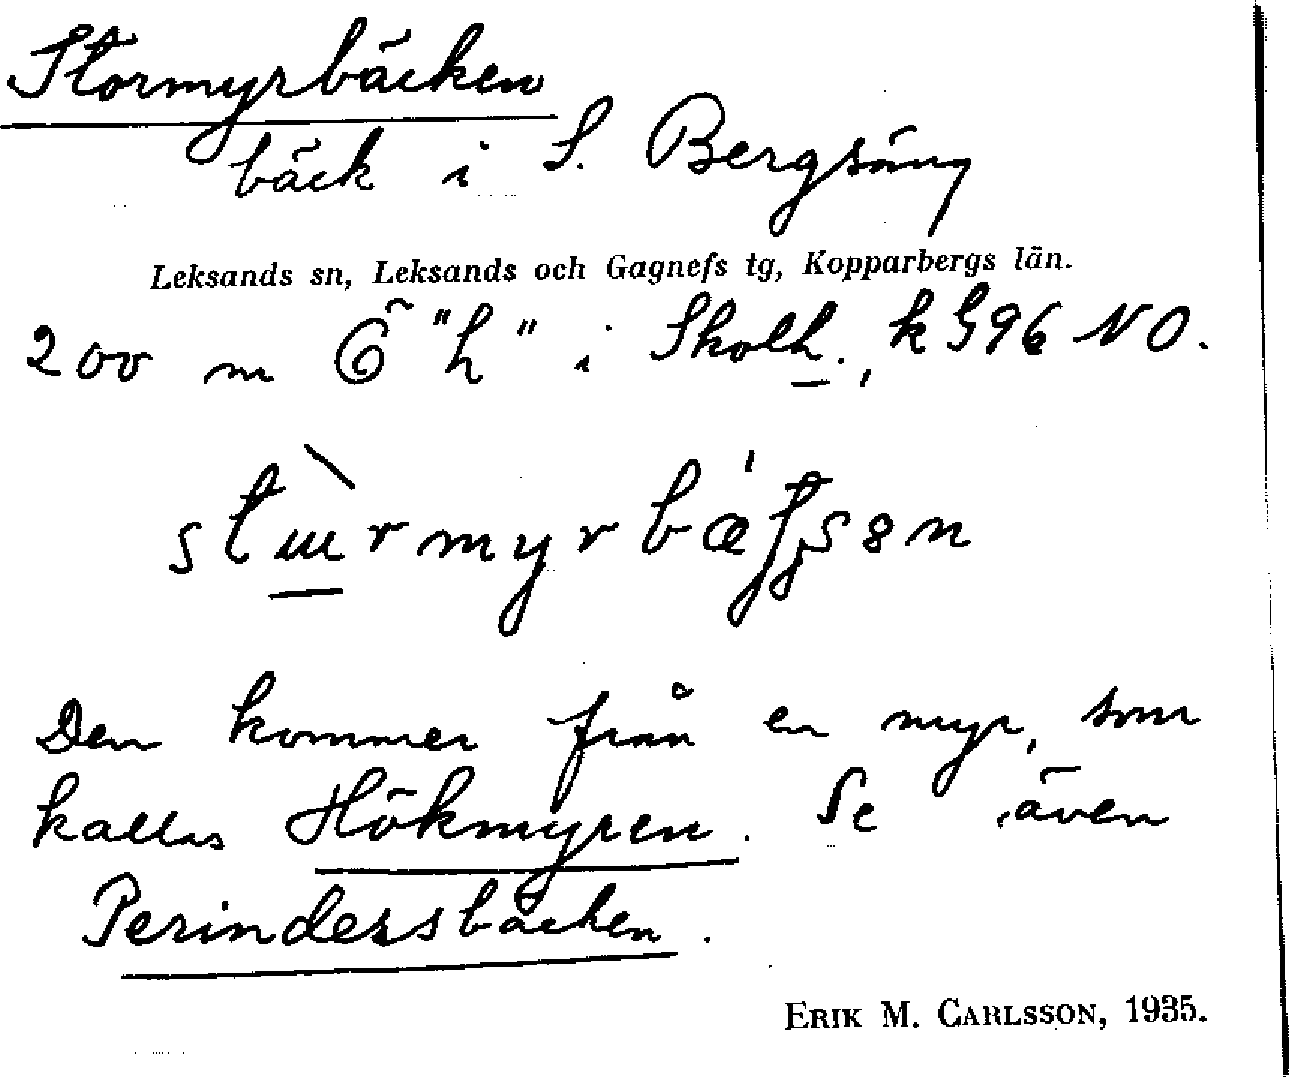 Stormyrbäcken
bäck i S. Bergsäng
Leksands sn, Leksands och Gagnefs tg, Kopparbergs län.
200 m Ö "h" i Skolh., k 596 NO.
Den kommer från en myr, som
kallas Hökmyren. Se även
Perindersbäcken.
ERIK M. CARLSSON, 1935.